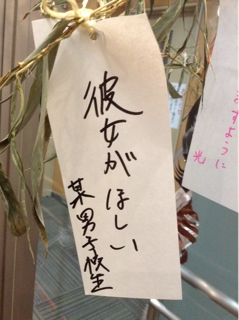 彼女がほしい
某男子校生
ますように
光